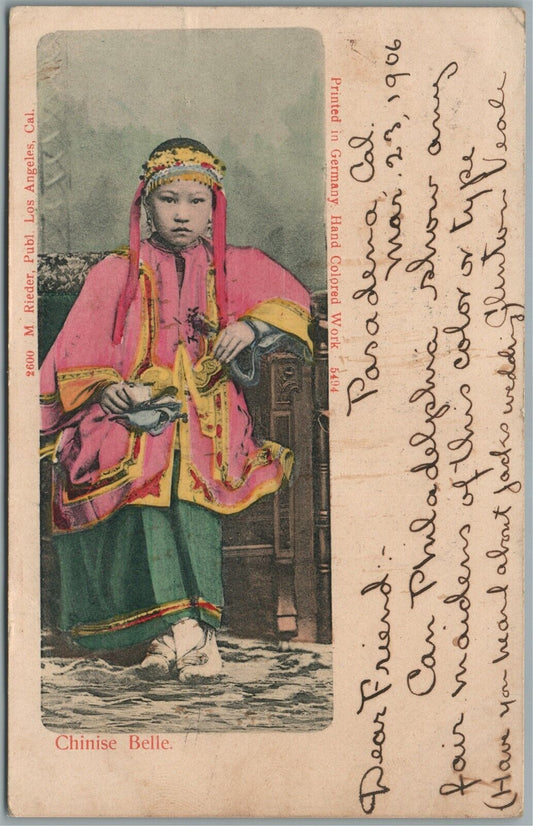 2600 M. Rieder, Publ. Los Angeles, Cal.
Printed in Germany. Hand Colored Work 5494
Chinise Belle.
Pasadena, Cal.
Mar. 23, 1906
Dear Friend:-
Can Philadelphia show any
fair maidens of this color or type
(Have you heard about Jacks wedding